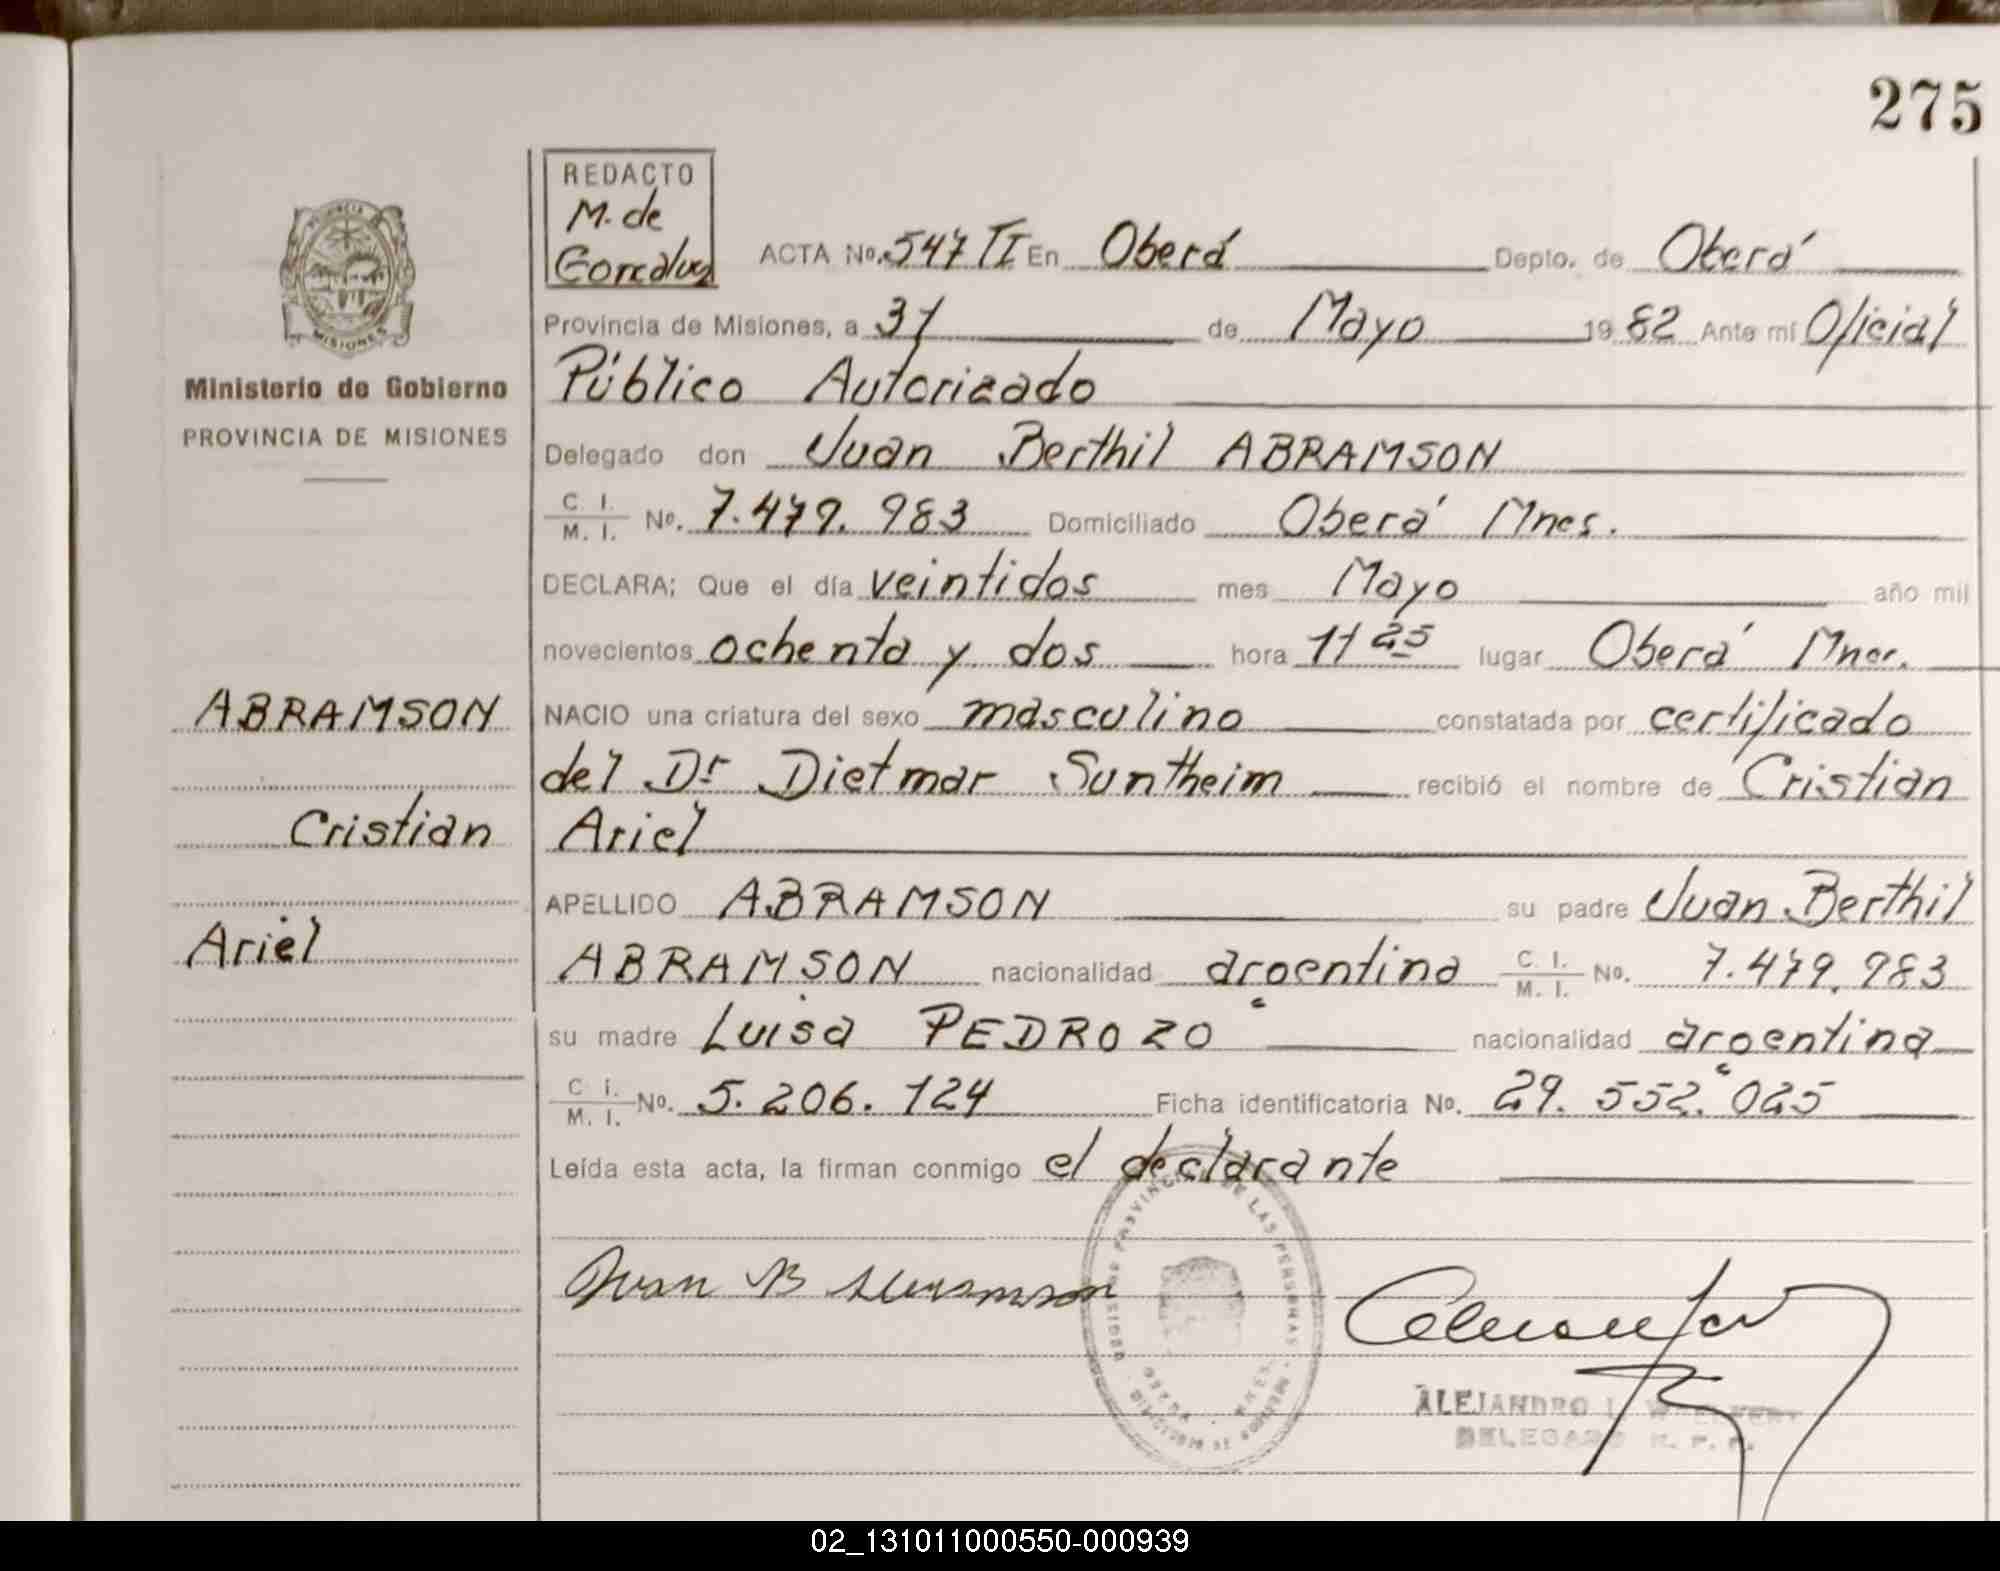 275
REDACTO
M. de
Goncalvez
ACTA No. 547 TI En Oberá Depto. de Oberá
Provincia de Misiones, a 31 de Mayo 1982 Ante mí Oficial
Público Autorizado
Ministerio de Gobierno
PROVINCIA DE MISIONES
Delegado don Juan Berthil ABRAMSON
C. I.
M. I. No. 7.479.983 Domiciliado Oberá Mnes.
DECLARA; Que el día veintidos mes Mayo año mil
novecientos ochenta y dos hora 11 25 lugar Oberá Mnes.
ABRAMSON
NACIO una criatura del sexo masculino constatada por certificado
del Dr Dietmar Suntheim recibió el nombre de Cristian
Cristian
Ariel
APELLIDO ABRAMSON su padre Juan Berthil
Ariel
ABRAMSON nacionalidad argentina C. I.
M. I. No. 7.479.983
su madre Luisa PEDROZO nacionalidad argentina
C. I.
M. I. No. 5.206.124 Ficha identificatoria No. 29.552.025
Leída esta acta, la firman conmigo el declarante
Juan B Abramson
ALEJANDRO
DELEGADO R. P. P.
02_131011000550-000939